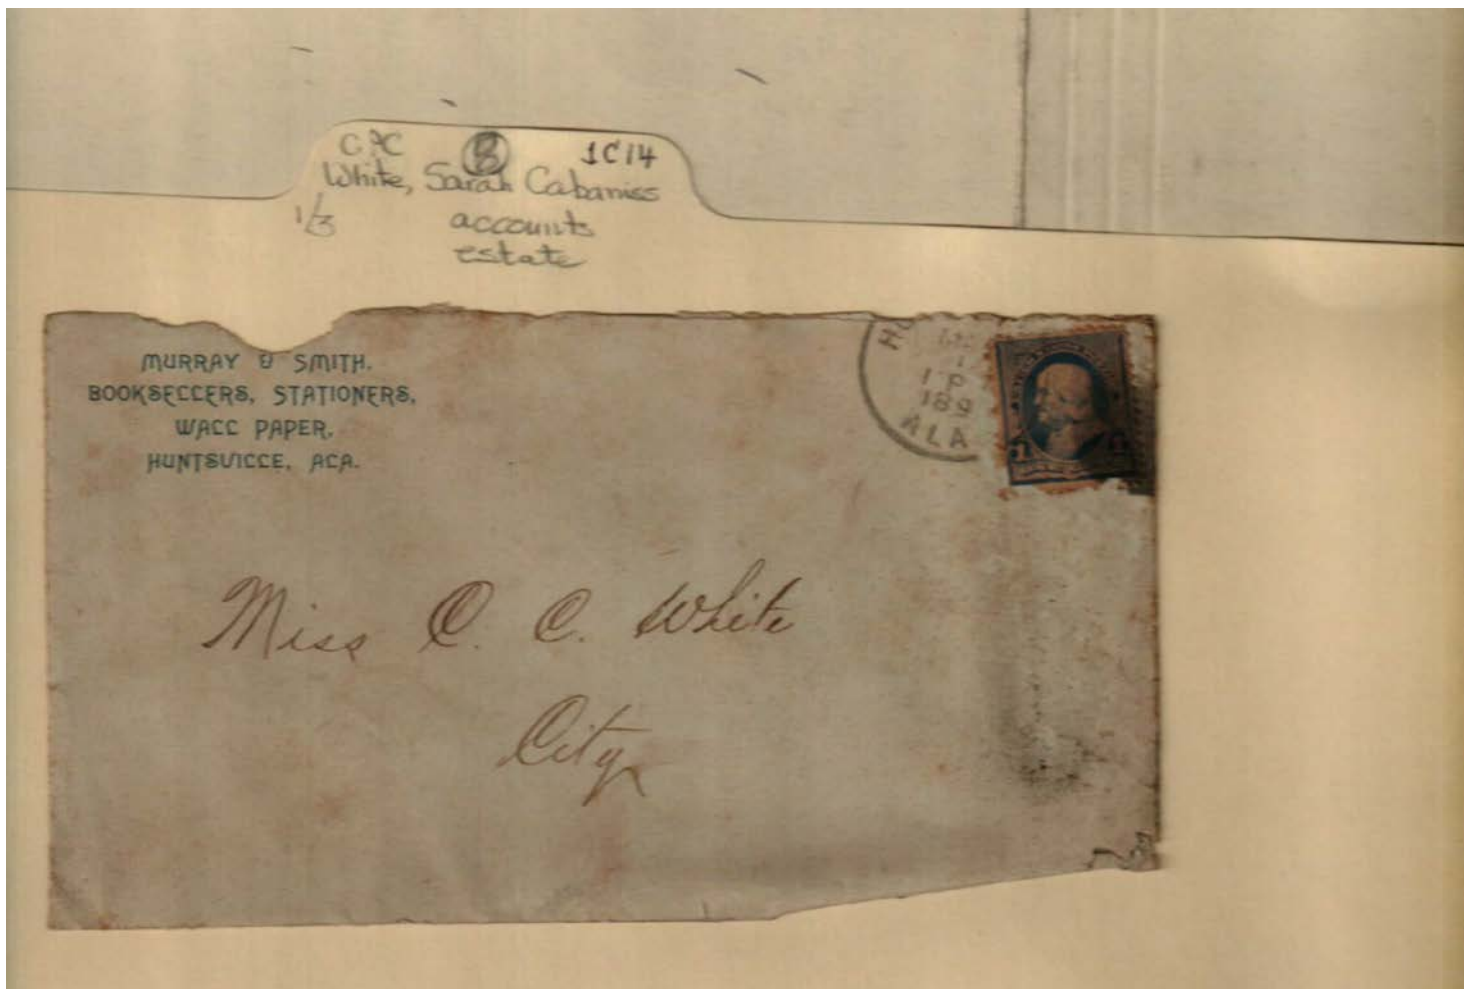 CPC B 1C14
White, Sarah Cabaniss
1/3 accounts
estate
MURRAY & SMITH.
BOOKSELLERS, STATIONERS,
WALL PAPER,
HUNTSVILLE, ALA.
1 P
189
ALA
1 1
Miss C. C. White
City